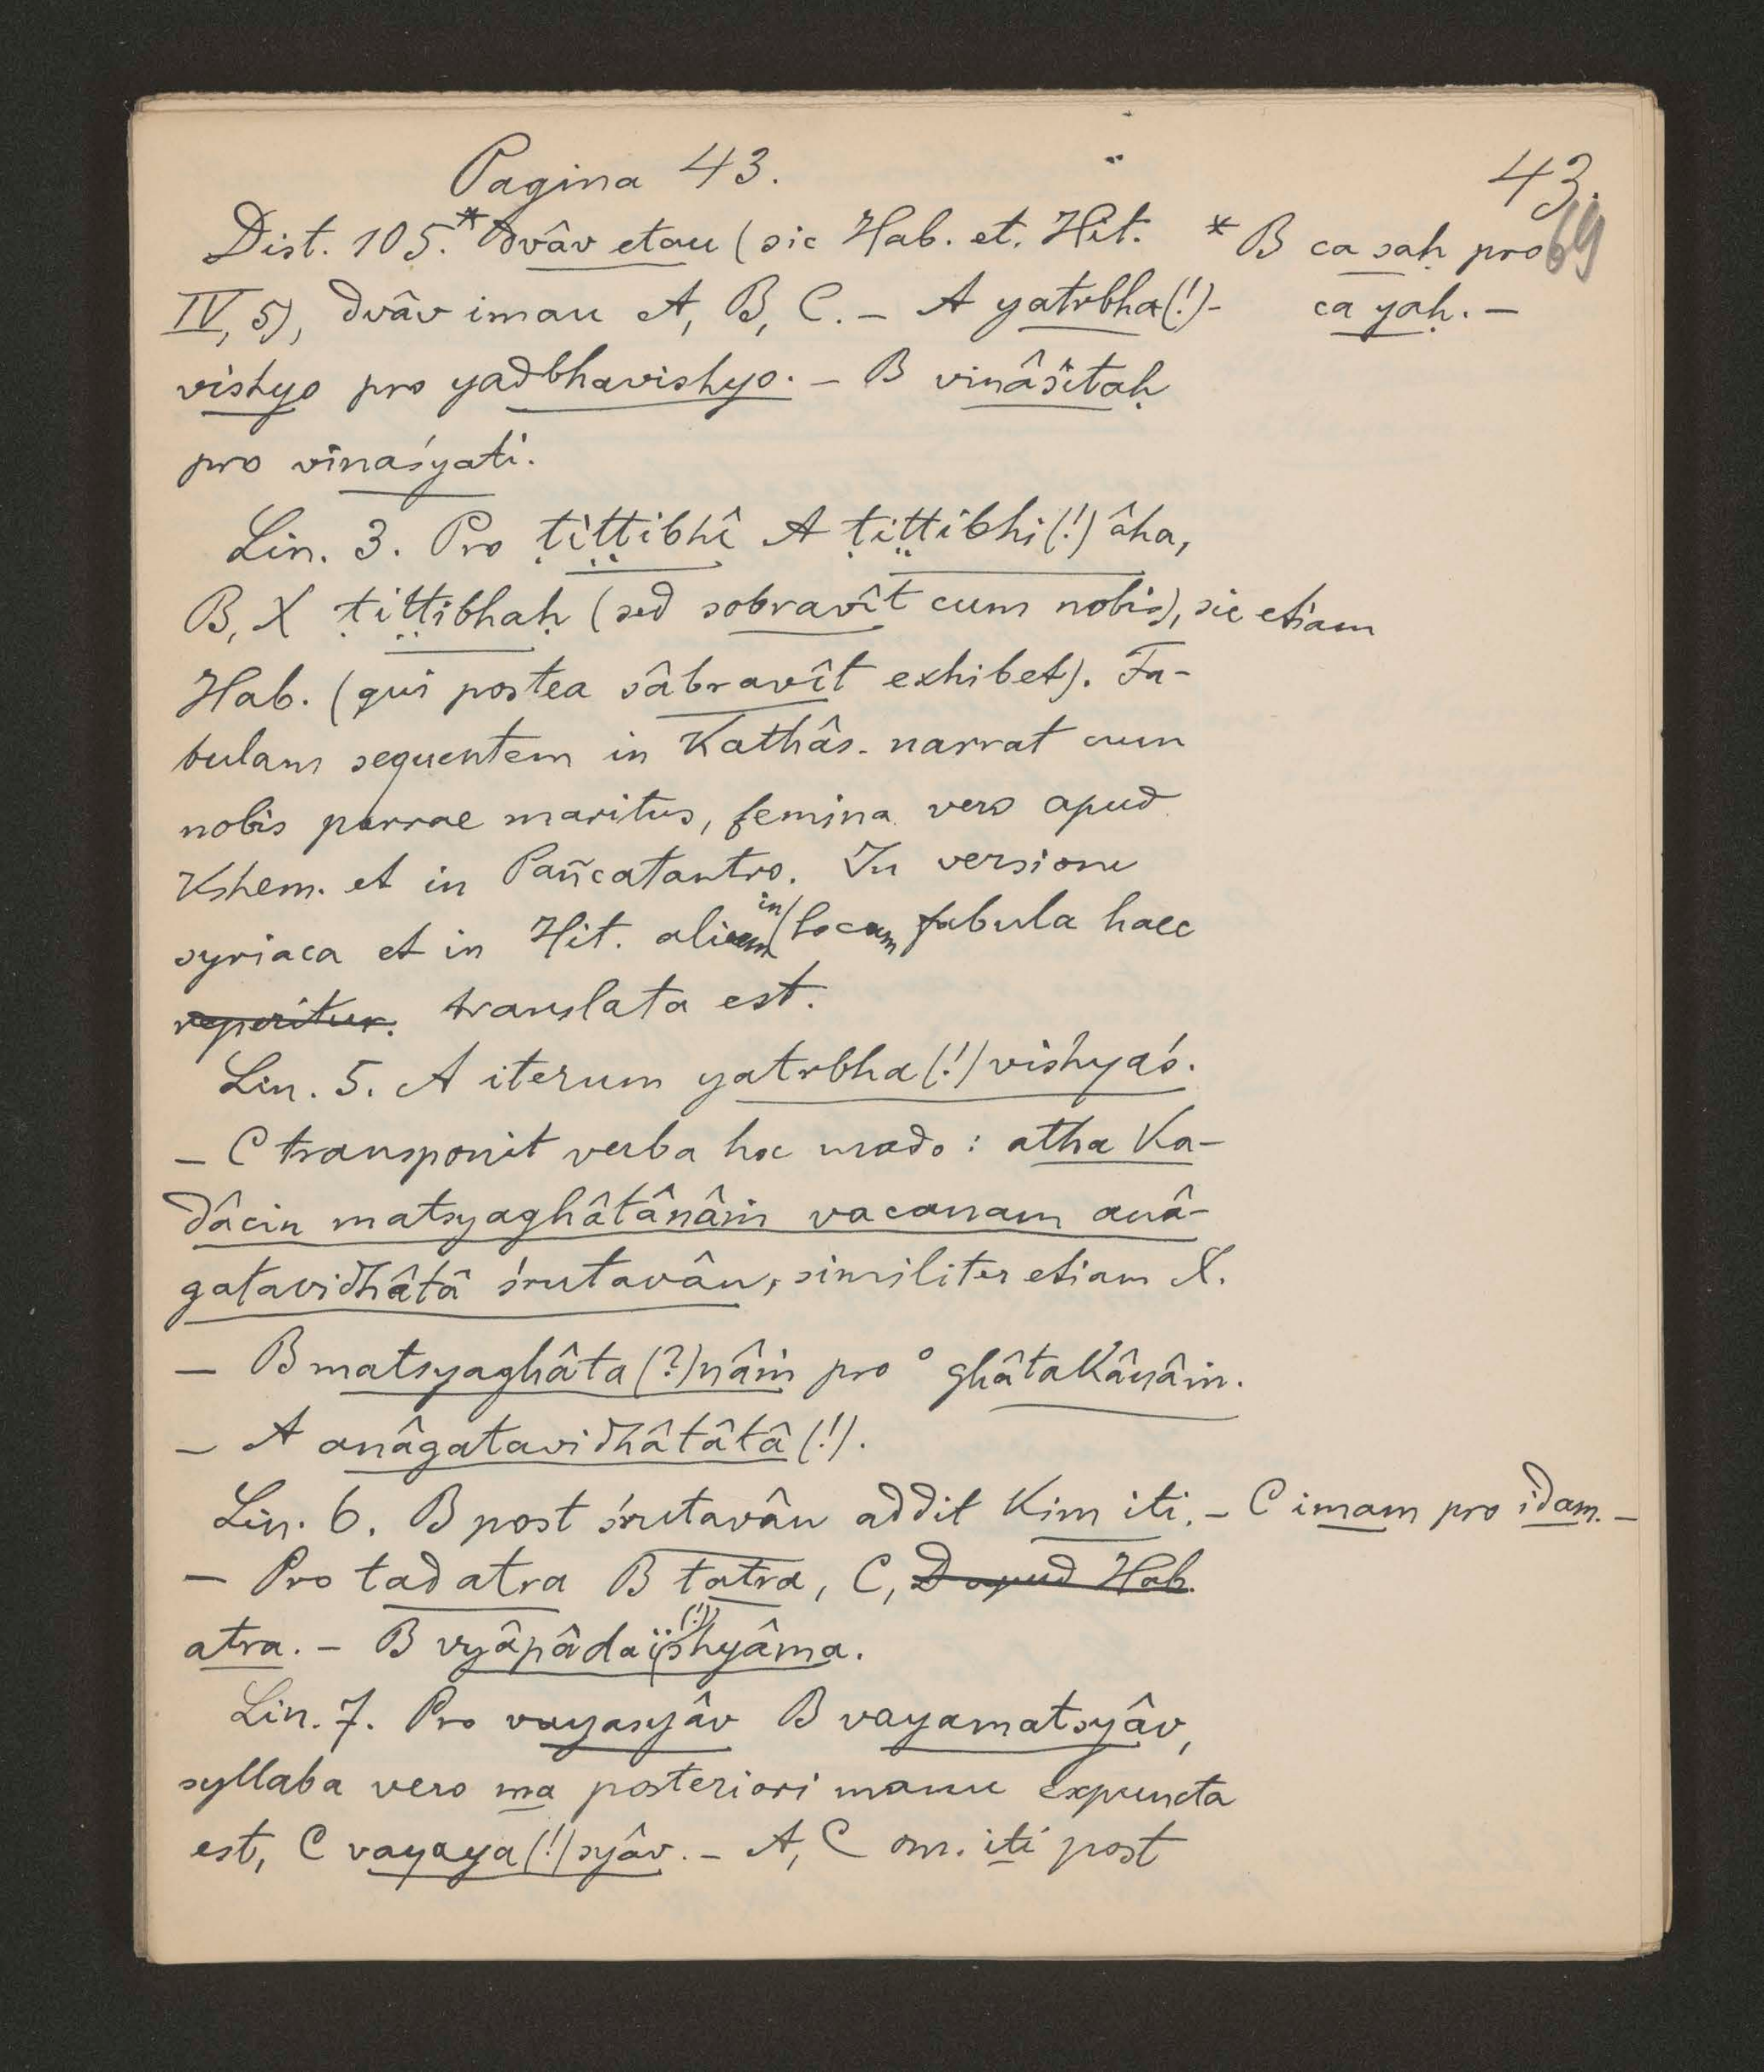 Pagina 43.
43.
69
Dist. 105.* dvâv etau (sic Hab. et. Hit.
* B ca saḥ pro
IV, 5), dvâv imau A, B, C. – A yatrbha(!)-
ca yaḥ. –
vishyo pro yadbhavishyo. – B vinâśitaḥ
pro vinaśyati.
Lin. 3. Pro ṭiṭṭibhî A ṭiṭṭibhi(!) âha,
B, X ṭiṭṭibhaḥ (sed sobravît cum nobis), sic etiam
Hab. (qui postea sâbravît exhibet). Fa-
bulam sequentem in Kathâs. narrat cum
nobis parrae maritus, femina vero apud
Kshem. et in Pañcatantro. In versione
syriaca et in Hit. in alium locum fabula haec
reperitur. translata est.
Lin. 5. A iterum yatrbha(!)vishyaś.
– C transponit verba hoc modo: atha ka-
dâcin matsyaghâtânâṁ vacanam anâ-
gatavidhâtâ śrutavân, similiter etiam X.
– B matsyaghâta(?)nâṁ pro °ghâtakânâṁ.
– A anâgatavidhâtâtâ(!).
Lin. 6. B post śrutavân addit kim iti. – C imam pro idam. –
– Pro tad atra B tatra, C, D apud Hab.
atra. – B vyâpâdaï(!)shyâma.
Lin. 7. Pro vayasyâv B vayamatsyâv,
syllaba vero ma posteriori manu expuncta
est, C vayaya(!)syâv. – A, C om. iti post